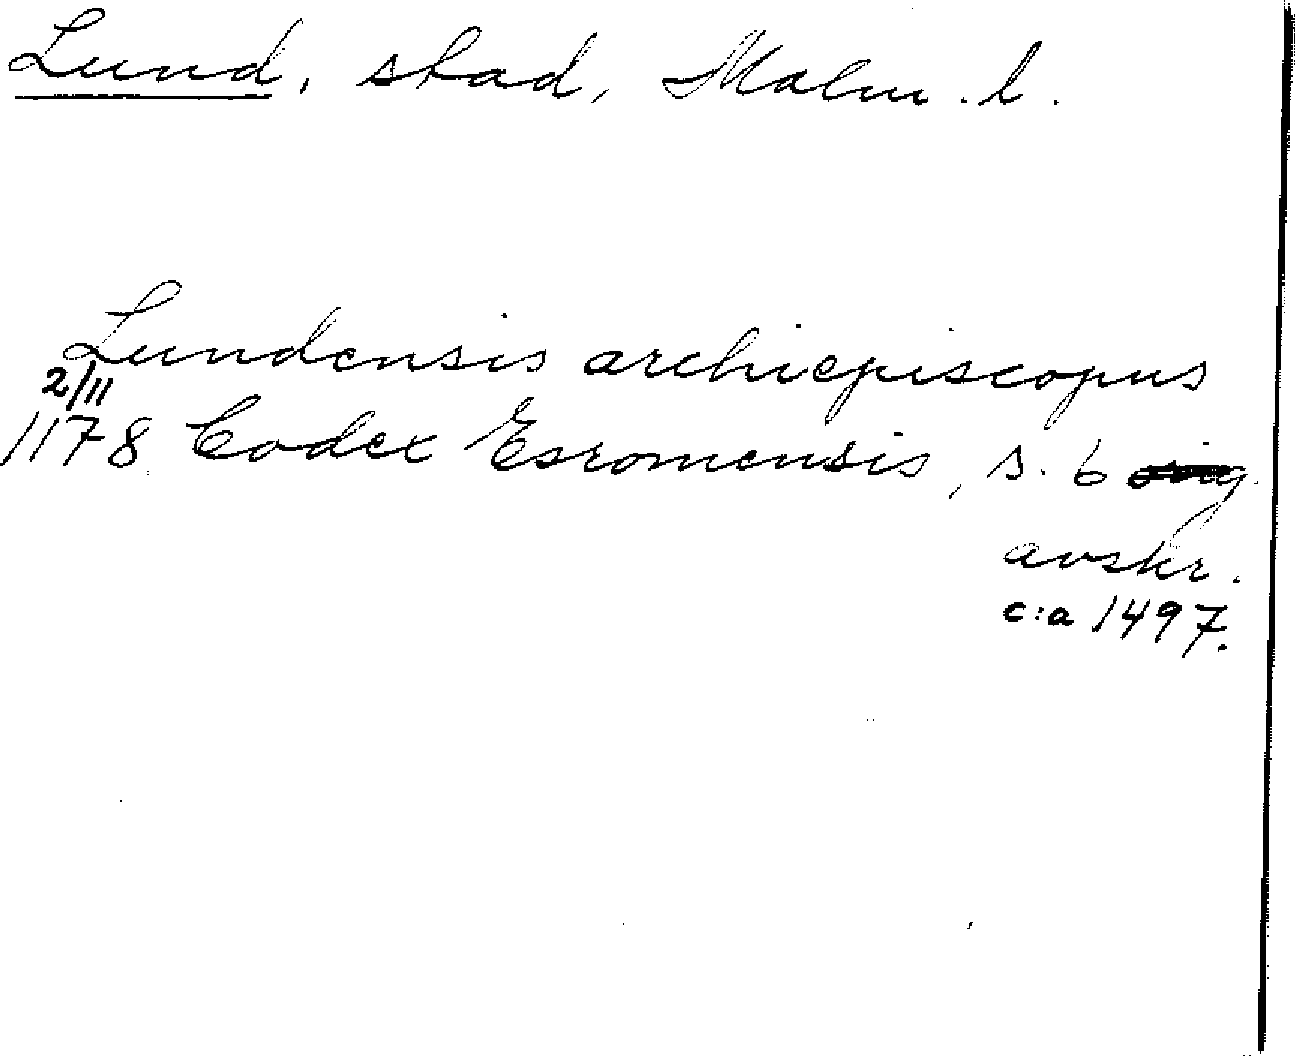 Lund, stad, Malm. l.
Lundensis archiepiscopus
2/11
1178 Codex Esromensis, s. 6
avskr.
c:a 1497.